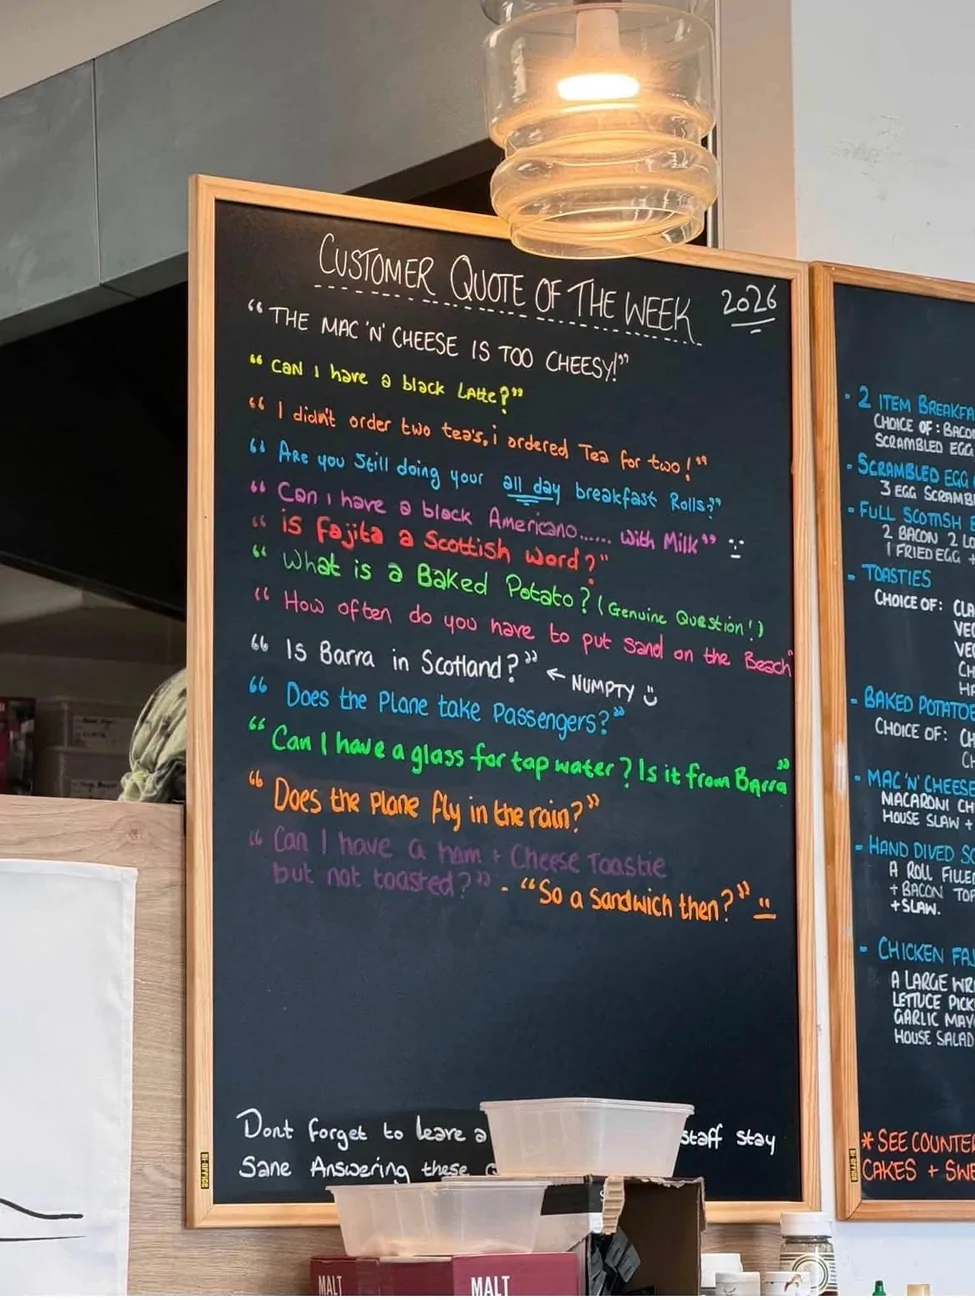 CUSTOMER QUOTE OF THE WEEK 2026
"THE MAC 'N' CHEESE IS TOO CHEESY!"
"CAN I have a black Latte?"
"I didn't order two tea's, i ordered Tea for two!"
"Are you Still doing your all day breakfast Rolls?"
"Can i have a black Americano...... with Milk"
"is fajita a Scottish word?"
"What is a Baked Potato? (Genuine Question!)
"How often do you have to put sand on the Beach"
"Is Barra in Scotland?" ← NUMPTY
"Does the Plane take Passengers?"
"Can I have a glass for tap water? Is it from Barra"
"Does the Plane fly in the rain?"
"Can I have a ham + Cheese Toastie
but not toasted?" - "So a Sandwich then?"
Dont forget to leave a staff stay
Sane Answering these
- 2 ITEM
CHOICE OF:
SCRAMBLED EGG
- SCRAMBLED EGG
3 EGG
- FULL SCOTISH
2 BACON 2
1 FRIED EGG +
- TOASTIES
CHOICE OF:
- BAKED
CHOICE OF:
- MAC 'N' CHEESE
MACARONI
HOUSE SLAW +
- HAND DIVED
A ROLL
+ BACON
+ SLAW.
- CHICKEN
A LARGE
LETTUCE
GARLIC
HOUSE
* SEE
CAKES +
MALT
MALT